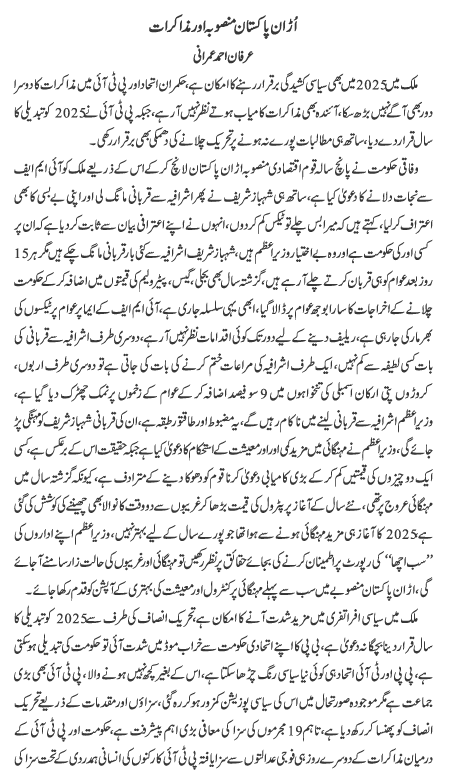 اُڑان پاکستان منصوبہ اور مذاکرات
عرفان احمد عمرانی
ملک میں 2025 میں بھی سیاسی کشیدگی برقرار رہنے کا امکان ہے، حکمران اتحاد اور پی ٹی آئی میں مذاکرات کا دوسرا
دور بھی آگے نہیں بڑھ سکا، آئندہ بھی مذاکرات کامیاب ہوتے نظر نہیں آ رہے، جبکہ پی ٹی آئی نے 2025 کو تبدیلی کا
سال قرار دے دیا، ساتھ ہی مطالبات پورے نہ ہونے پر تحریک چلانے کی دھمکی بھی برقرار رکھی۔
وفاقی حکومت نے پانچ سالہ قوم اقتصادی منصوبہ اڑان پاکستان لانچ کر کے اس کے ذریعے ملک کو آئی ایم ایف
سے نجات دلانے کا دعویٰ کیا ہے، ساتھ ہی شہباز شریف نے پھر اشرافیہ سے قربانی مانگ لی اور اپنی بے بسی کا بھی
اعتراف کر لیا، کہتے ہیں کہ میرا بس چلے تو ٹیکس کم کر دوں، انہوں نے اپنے اعترافی بیان سے ثابت کر دیا ہے کہ ان پر
کسی اور کی حکومت ہے اور وہ بے اختیار وزیراعظم ہیں، شہباز شریف اشرافیہ سے کئی بار قربانی مانگ چکے ہیں مگر ہر 15
روز بعد عوام کو ہی قربان کرتے چلے آ رہے ہیں، گزشتہ سال بھی بجلی، گیس، پیٹرولیم کی قیمتوں میں اضافہ کر کے حکومت
چلانے کے اخراجات کا سارا بوجھ عوام پر ڈالا گیا، ابھی یہی سلسلہ جاری ہے، آئی ایم ایف کے ایما پر عوام پر ٹیکسوں کی
بھر مار کی جا رہی ہے، ریلیف دینے کے لیے دور تک کوئی اقدامات نظر نہیں آ رہے، دوسری طرف اشرافیہ سے قربانی کی
بات کسی لطیفہ سے کم نہیں، ایک طرف اشرافیہ کی مراعات ختم کرنے کی بات کی جاتی ہے تو دوسری طرف اربوں،
کروڑوں پتی ارکان اسمبلی کی تنخواہوں میں 9 سو فیصد اضافہ کر کے عوام کے زخموں پر نمک چھڑک دیا گیا ہے،
وزیراعظم اشرافیہ سے قربانی لینے میں ناکام رہیں گے، یہ مضبوط اور طاقتور طبقہ ہے، ان کی قربانی شہباز شریف کو مہنگی پڑ
جائے گی، وزیراعظم نے مہنگائی میں مزید کمی اور معیشت کے استحکام کا دعویٰ کیا ہے جبکہ حقیقت اس کے برعکس ہے، کسی
ایک دو چیزوں کی قیمتیں کم کر کے بڑی کامیابی دعویٰ کرنا قوم کو دھوکا دینے کے مترادف ہے، کیونکہ گزشتہ سال میں
مہنگائی عروج پر تھی، نئے سال کے آغاز پر پٹرول کی قیمت بڑھا کر غریبوں سے دو وقت کا نوالا بھی چھیننے کی کوشش کی گئی
ہے، 2025 کا آغاز ہی مزید مہنگائی ہونے سے ہوا تھا جو پورے سال کے لیے بہتر نہیں، وزیراعظم اپنے اداروں کی
”سب اچھا“ کی رپورٹ پر اطمینان کرنے کی بجائے حقائق پر نظر رکھیں تو مہنگائی اور غریبوں کی حالت زار سامنے آ جائے
گی، اڑان پاکستان منصوبے میں سب سے پہلے مہنگائی پر کنٹرول اور معیشت کی بہتری کے آپشن کو قدم رکھا جائے۔
ملک میں سیاسی افراتفری میں مزید شدت آنے کا امکان ہے، تحریک انصاف کی طرف سے 2025 کو تبدیلی کا
سال قرار دینا بچگانہ دعویٰ ہے، پی پی کا اپنے اتحادی حکومت سے خراب موڈ میں شدت آئی تو حکومت کی تبدیلی ہو سکتی
ہے، پی پی اور ٹی آئی اتحاد ہی کوئی نیا سیاسی رنگ چڑھا سکتا ہے، اس کے بغیر کچھ نہیں ہونے والا، پی ٹی آئی بھی بڑی
جماعت ہے مگر موجودہ صورتحال میں اس کی سیاسی پوزیشن کمزور ہو کر رہ گئی، سزاؤں اور مقدمات کے ذریعے تحریک
انصاف کو پھنسا کر رکھ دیا ہے، تاہم 19 مجرموں کی سزا کی معافی بڑی اہم پیشرفت ہے، حکومت اور پی ٹی آئی کے
درمیان مذاکرات کے دوسرے روز ہی فوجی عدالتوں سے سزا یافتہ پی ٹی آئی کارکنوں کی انسانی ہمدردی کے تحت سزا کی